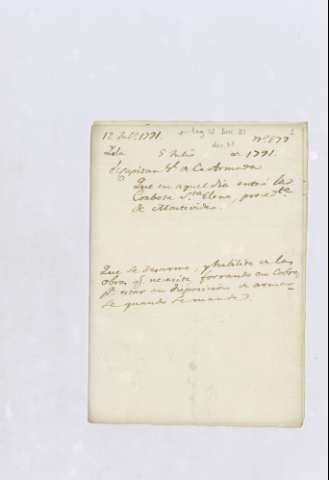 12 Jul.º 1791.
Nº 577
Isla 5 Julio de 1791.
el Capitan Gl de la Armada
Que en aquel dia entró la
Corbeta Sta Elena, proced.te
de Montevideo.
Que se desarme, y habilite en las
obras q.e necesite forrando en Cobre,
pª estar en disposicion de armar-
se quando se mande.